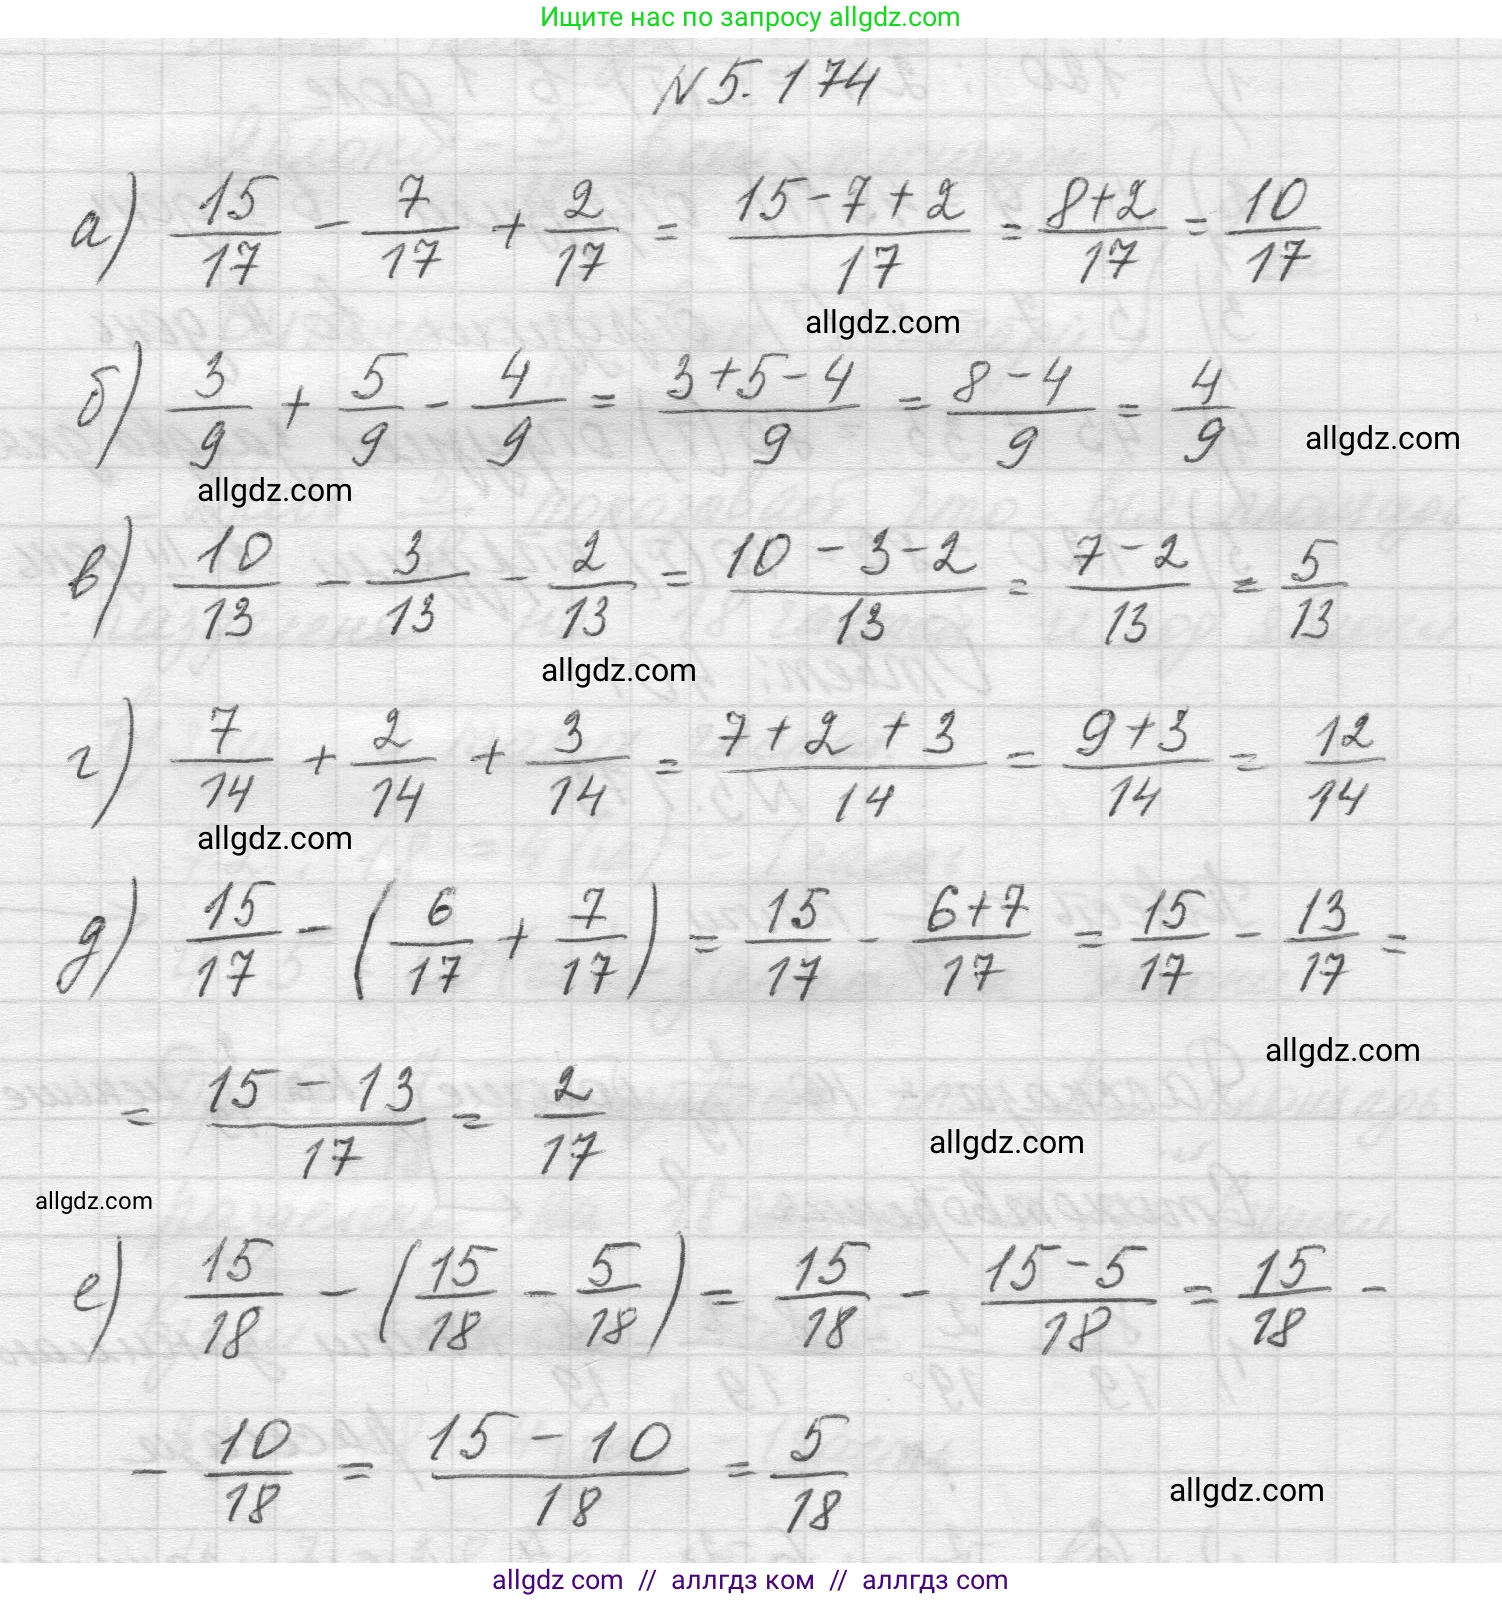 Ищите нас по запросу allgdz.com
№ 5.174
а) 15/17 - 7/17 + 2/17 = (15-7+2)/17 = (8+2)/17 = 10/17
allgdz.com
б) 3/9 + 5/9 - 4/9 = (3+5-4)/9 = (8-4)/9 = 4/9
allgdz.com
allgdz.com
в) 10/13 - 3/13 - 2/13 = (10-3-2)/13 = (7-2)/13 = 5/13
allgdz.com
г) 7/14 + 2/14 + 3/14 = (7+2+3)/14 = (9+3)/14 = 12/14
allgdz.com
д) 15/17 - (6/17 + 7/17) = 15/17 - (6+7)/17 = 15/17 - 13/17 =
allgdz.com
= (15-13)/17 = 2/17
allgdz.com
allgdz.com
е) 15/18 - (15/18 - 5/18) = 15/18 - (15-5)/18 = 15/18 -
- 10/18 = (15-10)/18 = 5/18
allgdz.com
allgdz com // аллгдз ком // allgdz.com